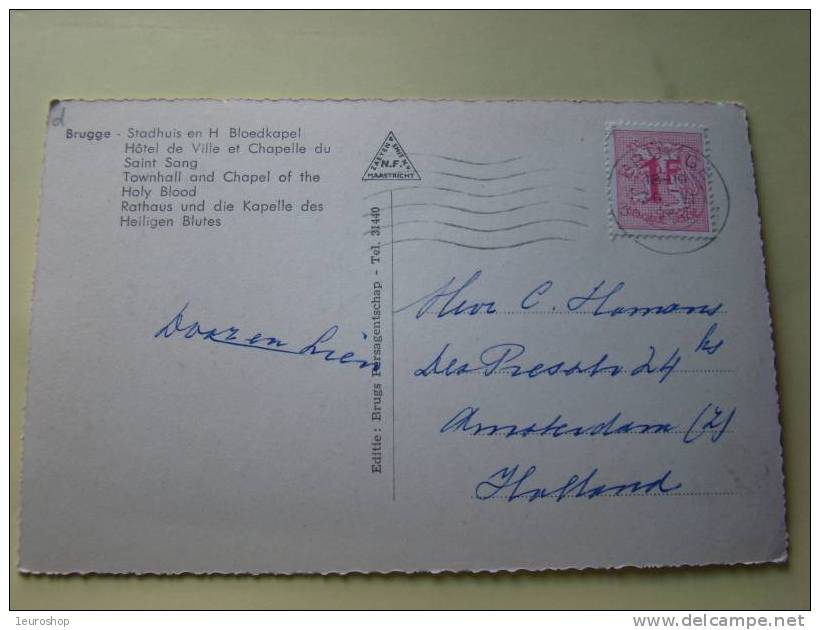 d
Brugge - Stadhuis en H Bloedkapel
Hôtel de Ville et Chapelle du
Saint Sang
Townhall and Chapel of the
Holy Blood
Rathaus und die Kapelle des
Heiligen Blutes
N.F.
MAASTRICHT
1F
Editie: Brugs Persagentschap - Tel. 31440
en Lien
Heer C. Homans
24 hs
Amsterdam (Z)
Holland
leuroshop
www.delcampe.net